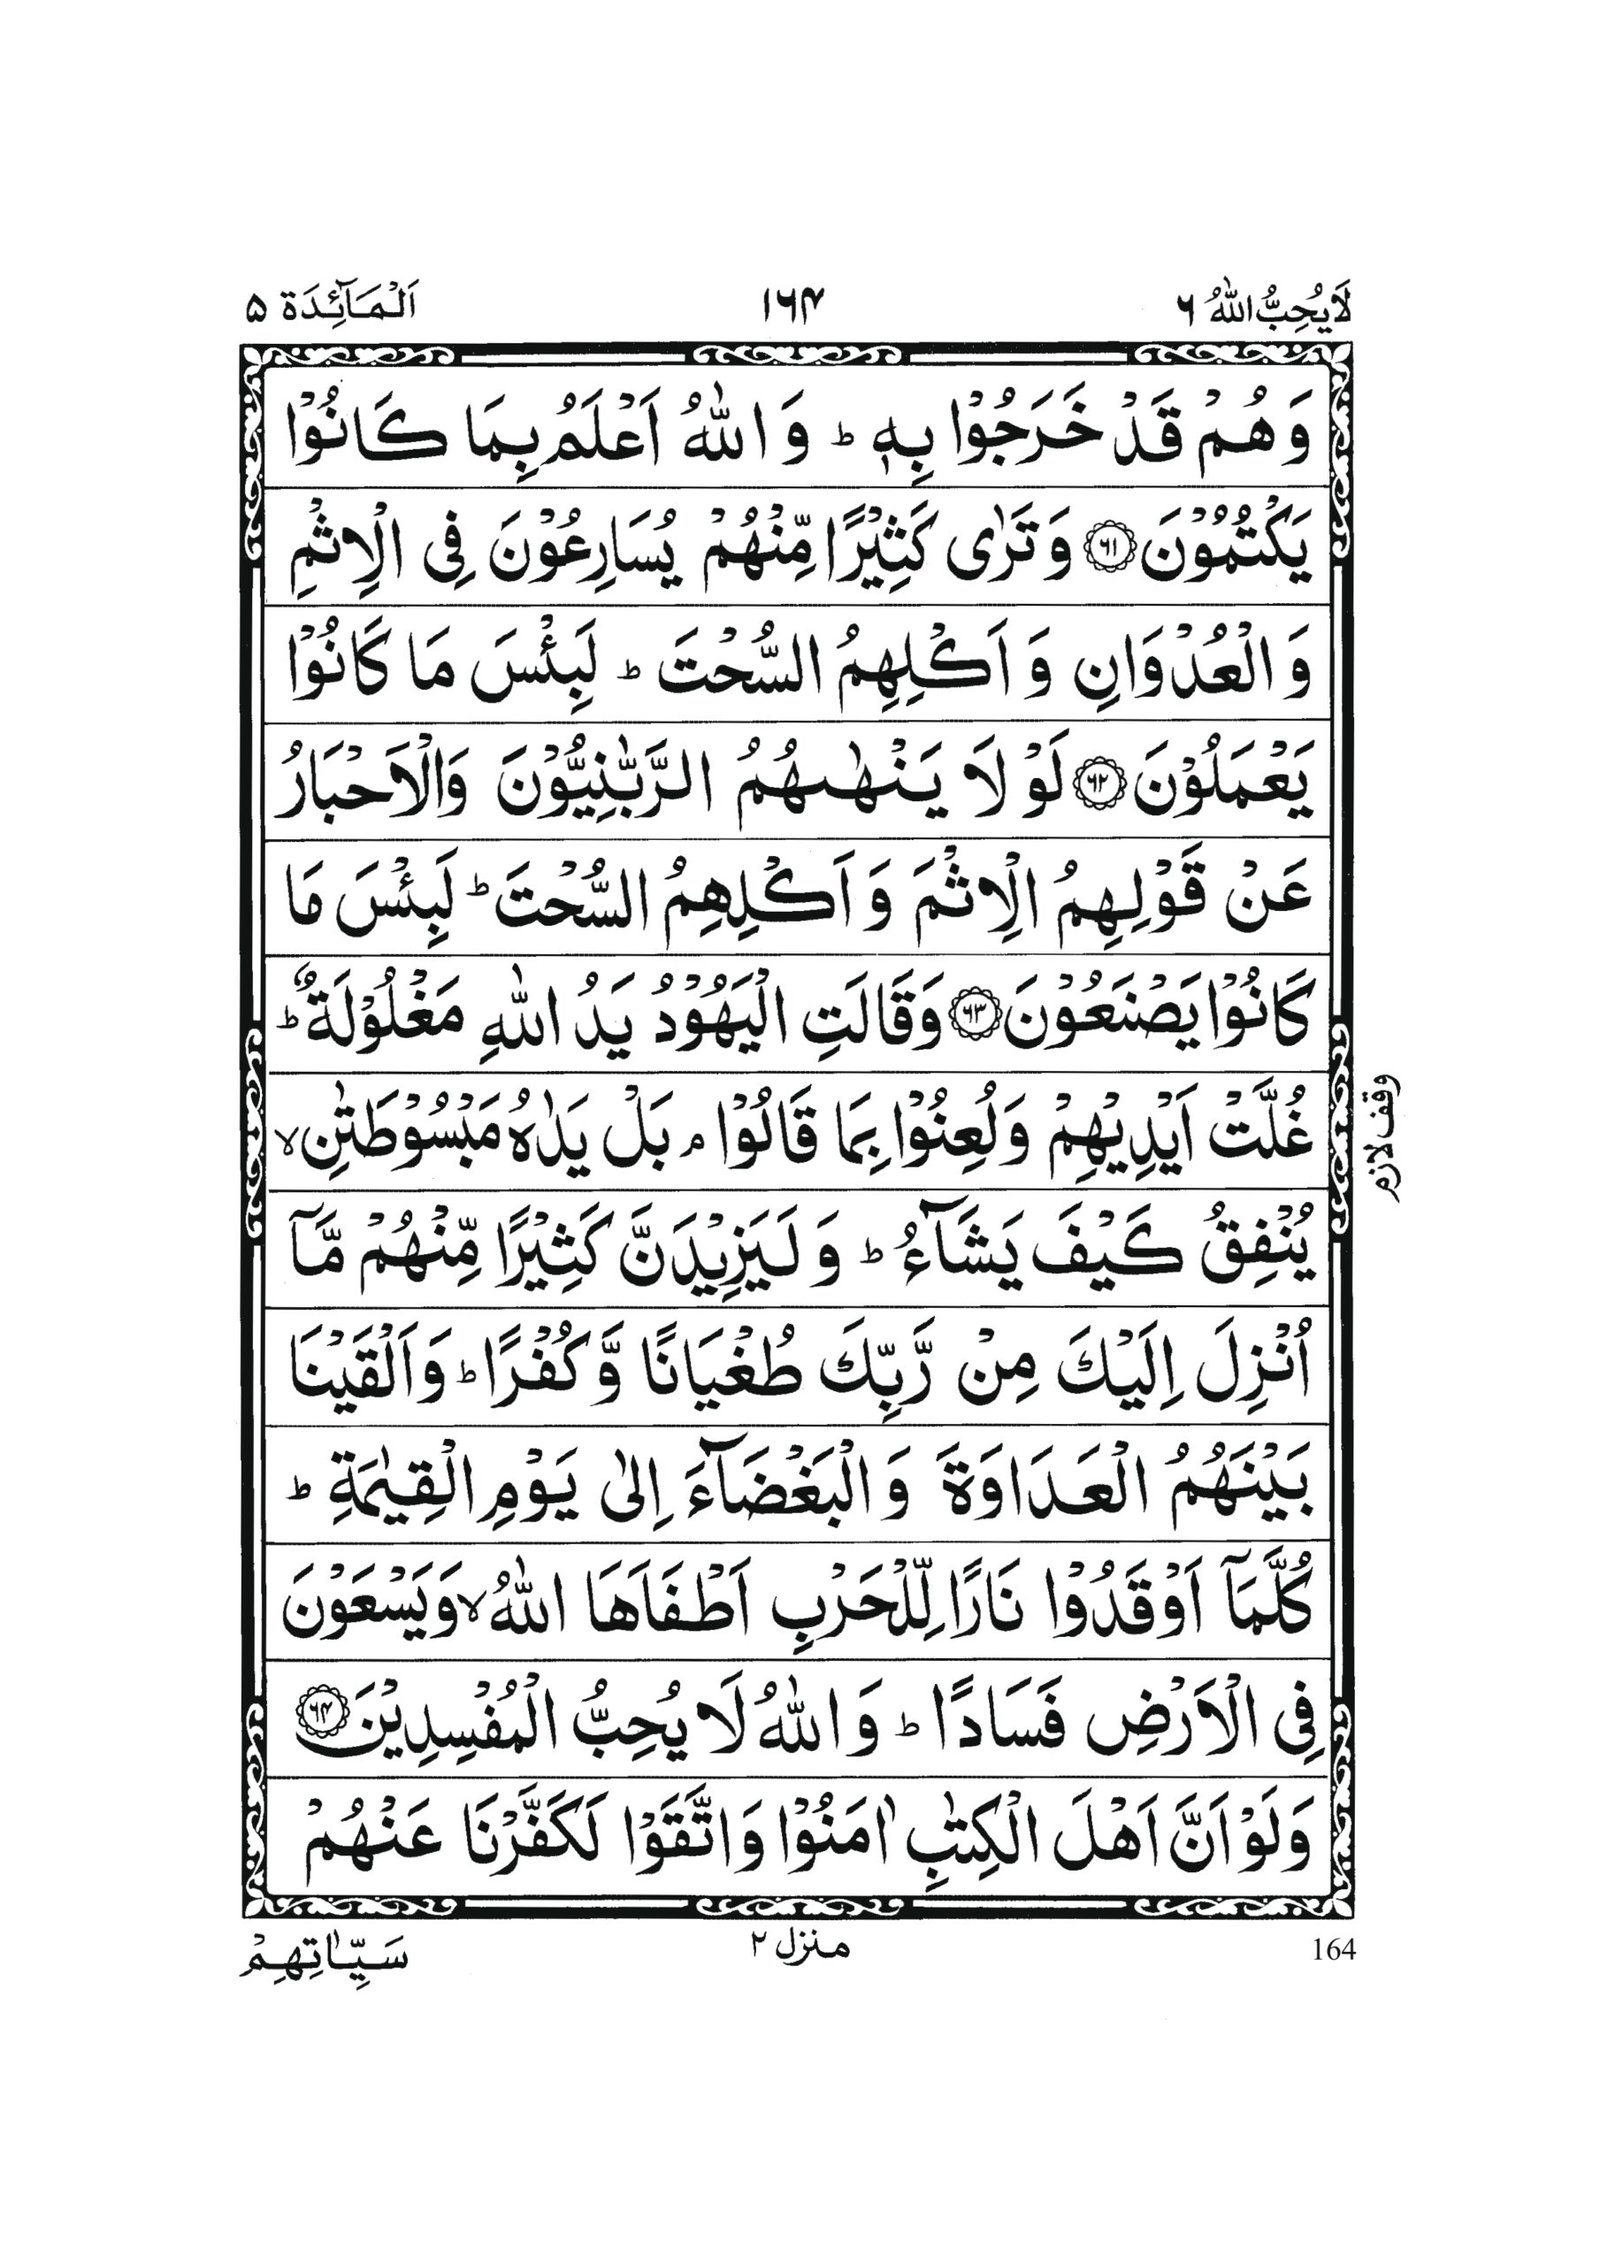 لَا يُحِبُّ اللّٰهُ ٦
١٦۴
اَلْمَآئِدَة ۵
وَ هُمْ قَدْ خَرَجُوْا بِهٖ ؕ وَ اللّٰهُ اَعْلَمُ بِمَا كَانُوْا
يَكْتُمُوْنَ ﴿۶۱﴾ وَ تَرٰى كَثِيْرًا مِّنْهُمْ يُسَارِعُوْنَ فِى الْاِثْمِ
وَ الْعُدْوَانِ وَ اَكْلِهِمُ السُّحْتَ ؕ لَبِئْسَ مَا كَانُوْا
يَعْمَلُوْنَ ﴿۶۲﴾ لَوْ لَا يَنْهٰىهُمُ الرَّبّٰنِيُّوْنَ وَالْاَحْبَارُ
عَنْ قَوْلِهِمُ الْاِثْمَ وَ اَكْلِهِمُ السُّحْتَ ؕ لَبِئْسَ مَا
كَانُوْا يَصْنَعُوْنَ ﴿۶۳﴾ وَقَالَتِ الْيَهُوْدُ يَدُ اللّٰهِ مَغْلُوْلَةٌ ؕ
غُلَّتْ اَيْدِيْهِمْ وَلُعِنُوْا بِمَا قَالُوْا ۘ بَلْ يَدٰهُ مَبْسُوْطَتٰنِ ۙ
وقف لازم
يُنْفِقُ كَيْفَ يَشَآءُ ؕ وَ لَيَزِيْدَنَّ كَثِيْرًا مِّنْهُمْ مَّآ
اُنْزِلَ اِلَيْكَ مِنْ رَّبِّكَ طُغْيَانًا وَّ كُفْرًا ؕ وَ اَلْقَيْنَا
بَيْنَهُمُ الْعَدَاوَةَ وَ الْبَغْضَآءَ اِلٰى يَوْمِ الْقِيٰمَةِ ؕ
كُلَّمَآ اَوْقَدُوْا نَارًا لِّلْحَرْبِ اَطْفَاَهَا اللّٰهُ ۙ وَ يَسْعَوْنَ
فِى الْاَرْضِ فَسَادًا ؕ وَ اللّٰهُ لَا يُحِبُّ الْمُفْسِدِيْنَ ﴿۶۴﴾
وَلَوْ اَنَّ اَهْلَ الْكِتٰبِ اٰمَنُوْا وَاتَّقَوْا لَكَفَّرْنَا عَنْهُمْ
164
منزل ٢
سَيِّاٰتِهِمْ